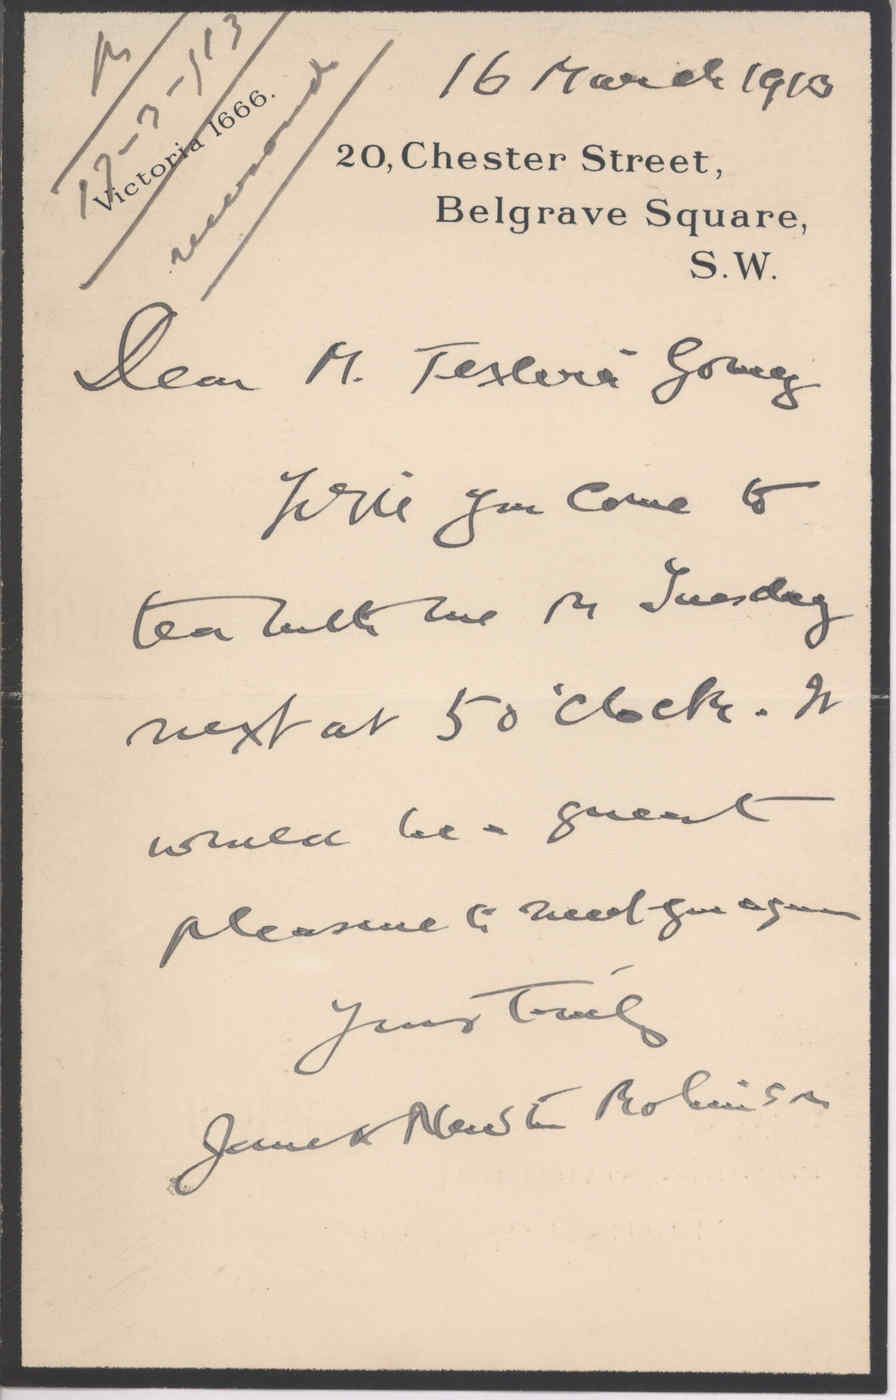 R
17-3-913
Victoria 1666.
16 March 1913
20, Chester Street,
Belgrave Square,
S.W.
Dear M. Texeira Gomez
Will you come to
tea with me on Tuesday
next at 5 o'clock. It
would be a great
pleasure to meet you again
Yours truly
Janet Newton Robinson